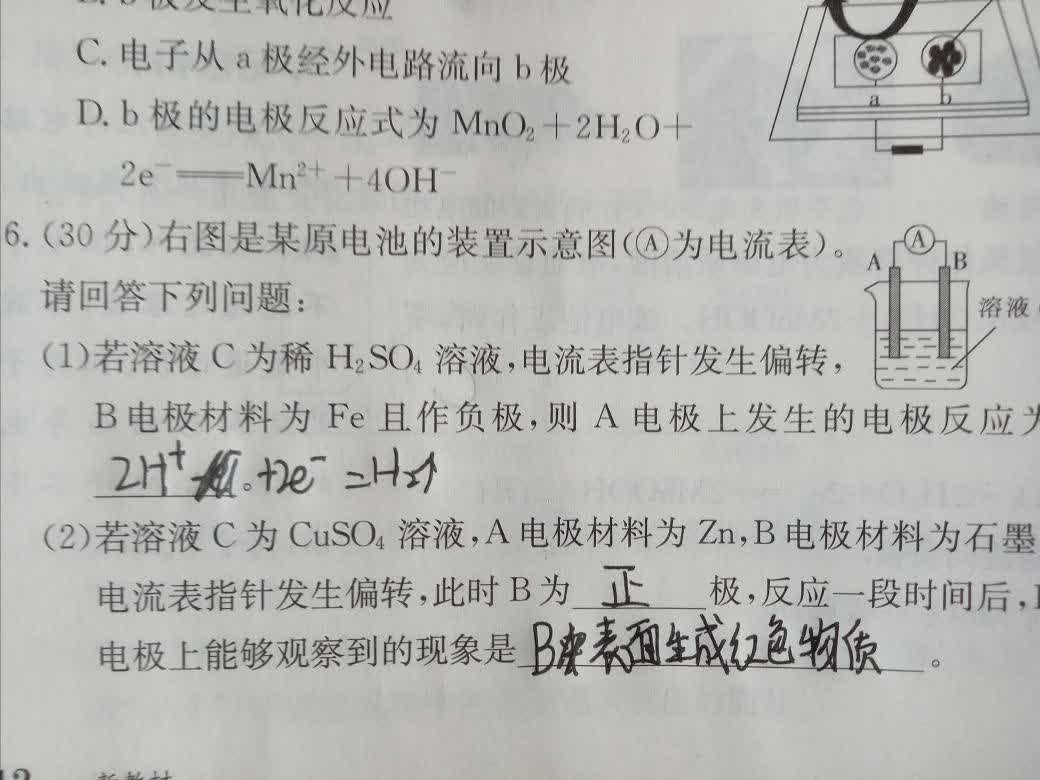 C. 电子从 a 极经外电路流向 b 极
D. b 极的电极反应式为 MnO₂+2H₂O+
2e⁻══Mn²⁺+4OH⁻
a b
6. (30 分)右图是某原电池的装置示意图(Ⓐ为电流表)。
请回答下列问题:
A A B
溶液
(1)若溶液 C 为稀 H₂SO₄ 溶液,电流表指针发生偏转,
B 电极材料为 Fe 且作负极,则 A 电极上发生的电极反应为
2H⁺ +2e⁻ =H₂↑
(2)若溶液 C 为 CuSO₄ 溶液,A 电极材料为 Zn,B 电极材料为石墨
电流表指针发生偏转,此时 B 为 正 极,反应一段时间后,
电极上能够观察到的现象是 B 表面生成红色物质 。